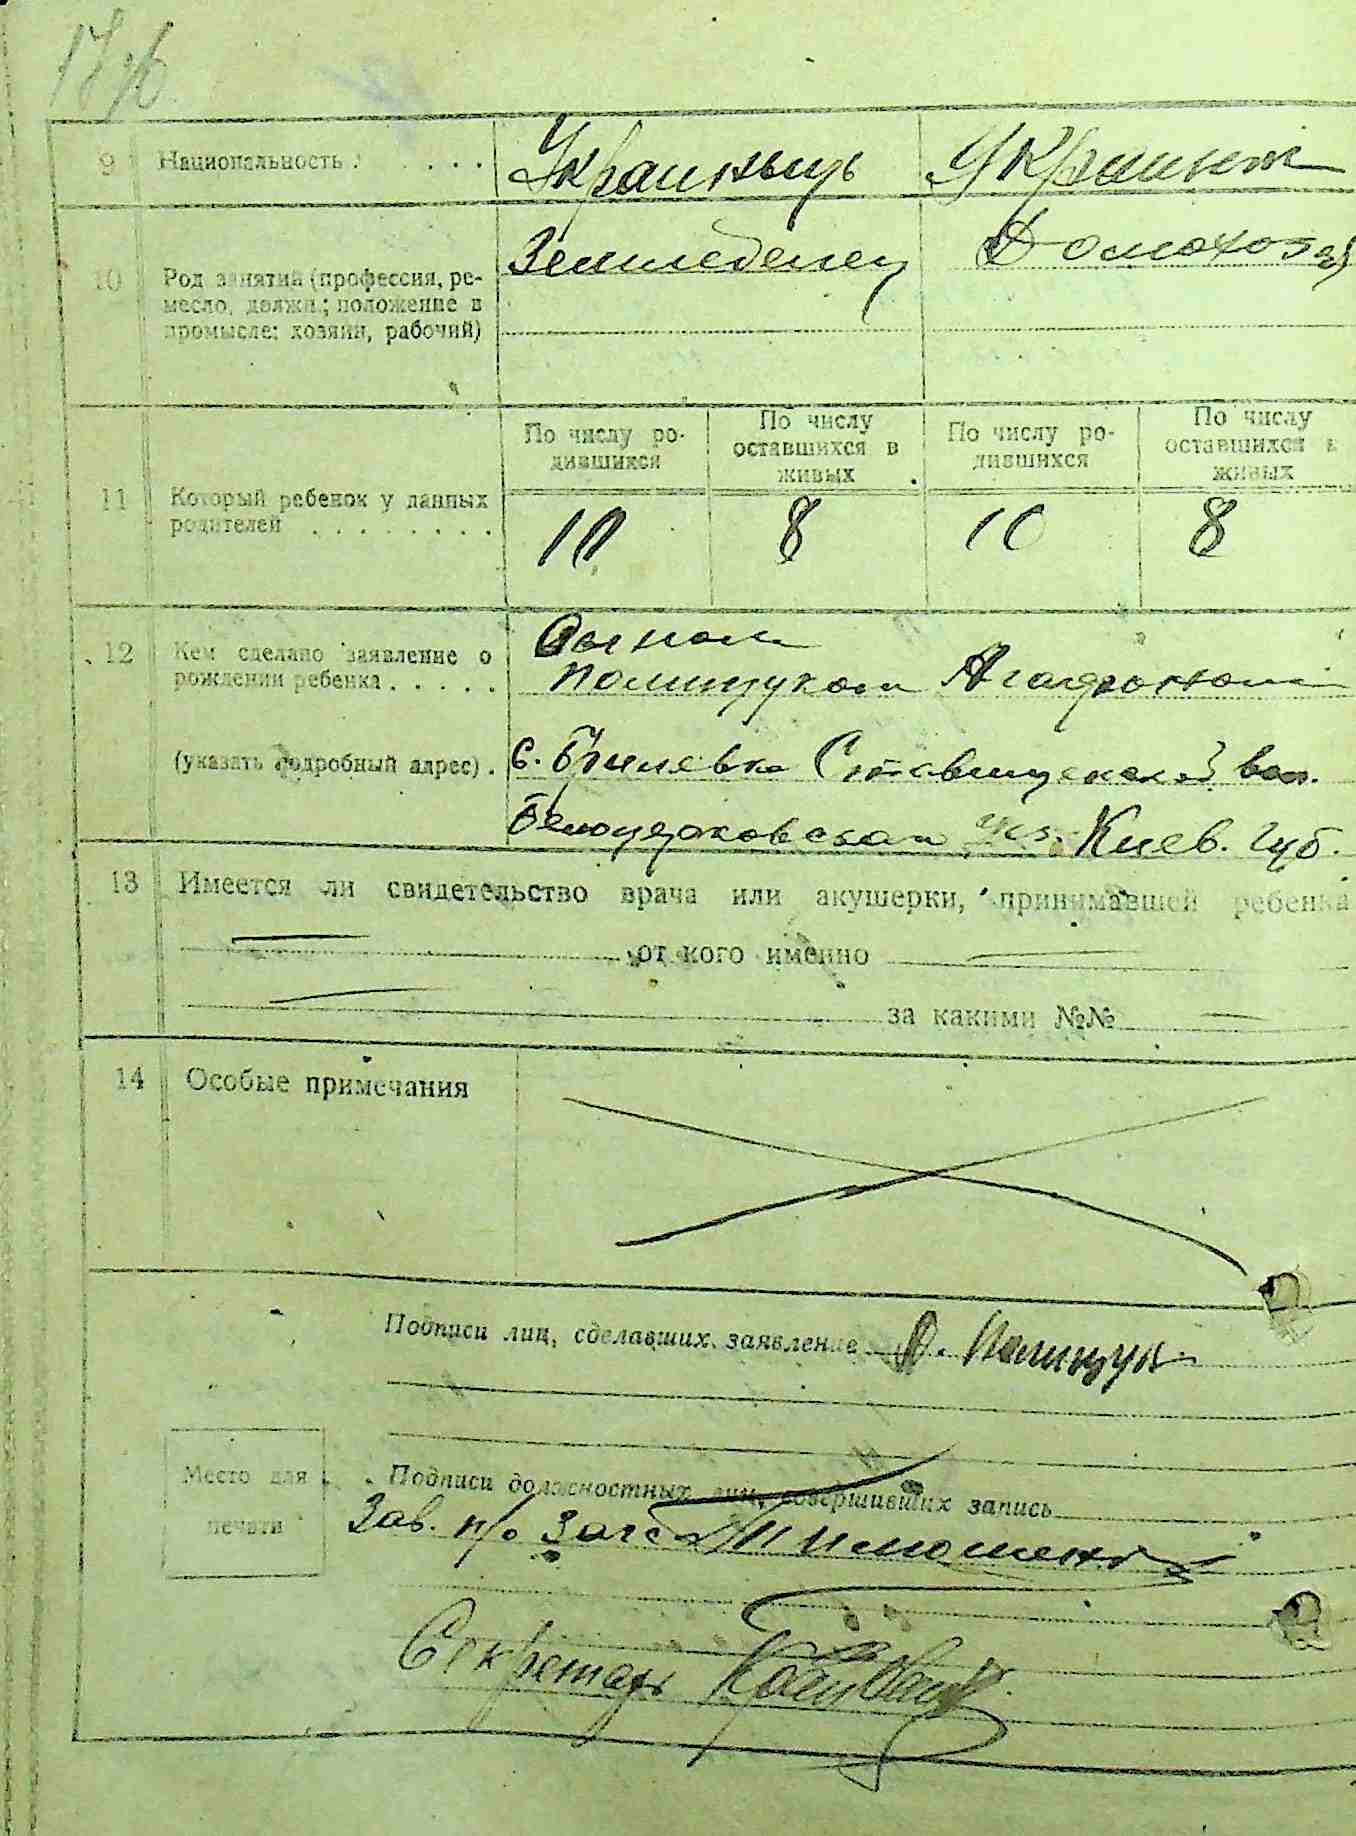 9 Национальность Украиньць Украинк
10 Род занятий (профессия, ре-
месло, должн.; положение в
промысле: хозяин, рабочий)
Земледелец Домохоз
11 Который ребенок у данных
родителей
По числу ро-
дившихся
По числу
оставшихся в
живых
По числу ро-
дившихся
По числу
оставшихся в
живых
10 8 10 8
12 Кем сделано заявление о
рождении ребенка
(указать подробный адрес).
Полищуком Агафоном
с. Брилевка Ставищенской вол.
Белоцерковского Киев. губ.
13 Имеется ли свидетельство врача или акушерки, принимавшей ребенка
от кого именно
за какими №№
14 Особые примечания
Подписи лиц, сделавших заявление А. Полищук
Место для
печати
Подписи должностных лиц, совершивших запись
Зав. п/о Загс Тимошенко
Секретарь